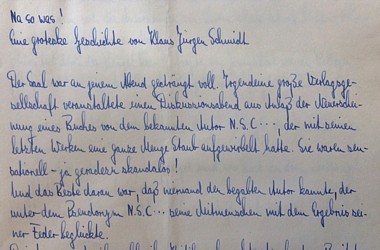 Na so was!
Eine groteske Geschichte von Klaus Jürgen Schmidt
Der Saal war an jenem Abend gedrängt voll. Irgendeine große Verlagsge-
sellschaft veranstaltete einen Diskussionsabend aus Anlaß der Neuerschei-
nung eines Buches von dem bekannten Autor N.S.C..., der mit seinen
letzten Werken eine ganze Menge Staub aufgewirbelt hatte. Sie waren sen-
sationell – ja geradezu skandalös!
Und das Beste daran war, daß niemand den begabten Autor kannte, der
unter dem Pseudonym N.S.C... seine Mitmenschen mit dem Ergebnis sei-
ner Feder beglückte.